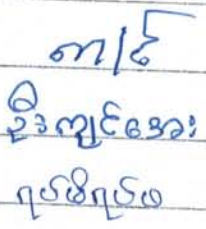 တ/င်
ဦးကျင်အေး
ရပ်မိရပ်ဖ